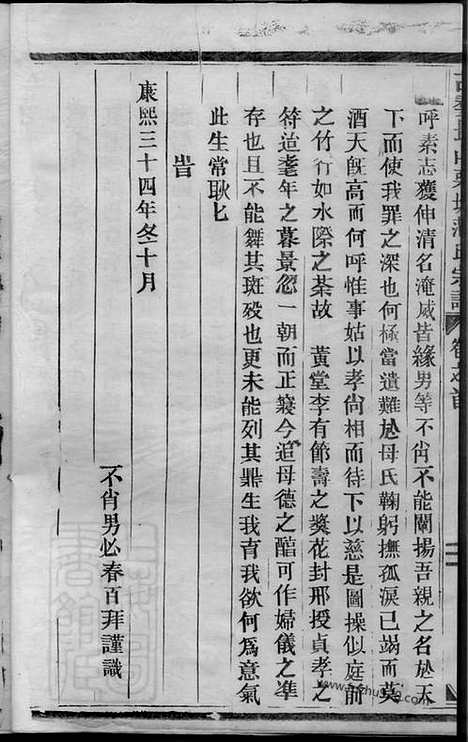 呼素志獲伸清名淹威皆緣男等不肖不能闡揚吾親之名於天
下而使我罪之深也何極當遺難於母氏鞠躬撫孤淚已竭而莫
酒天旣高而何呼惟事姑以孝尙相而待下以慈是圖操似庭前
之竹行如水際之荼故　黃堂李有節壽之奬花封邢授貞孝之
符迨耄年之暮景忽一朝而正寢今追母德之醅可作婦儀之準
存也旦不能舞其斑殁也更未能列其鼎生我育我欲何爲意氣
此生常耿匕
旹
康熙三十四年冬十月
不肖男必春百拜謹識
宗譜
卷之首